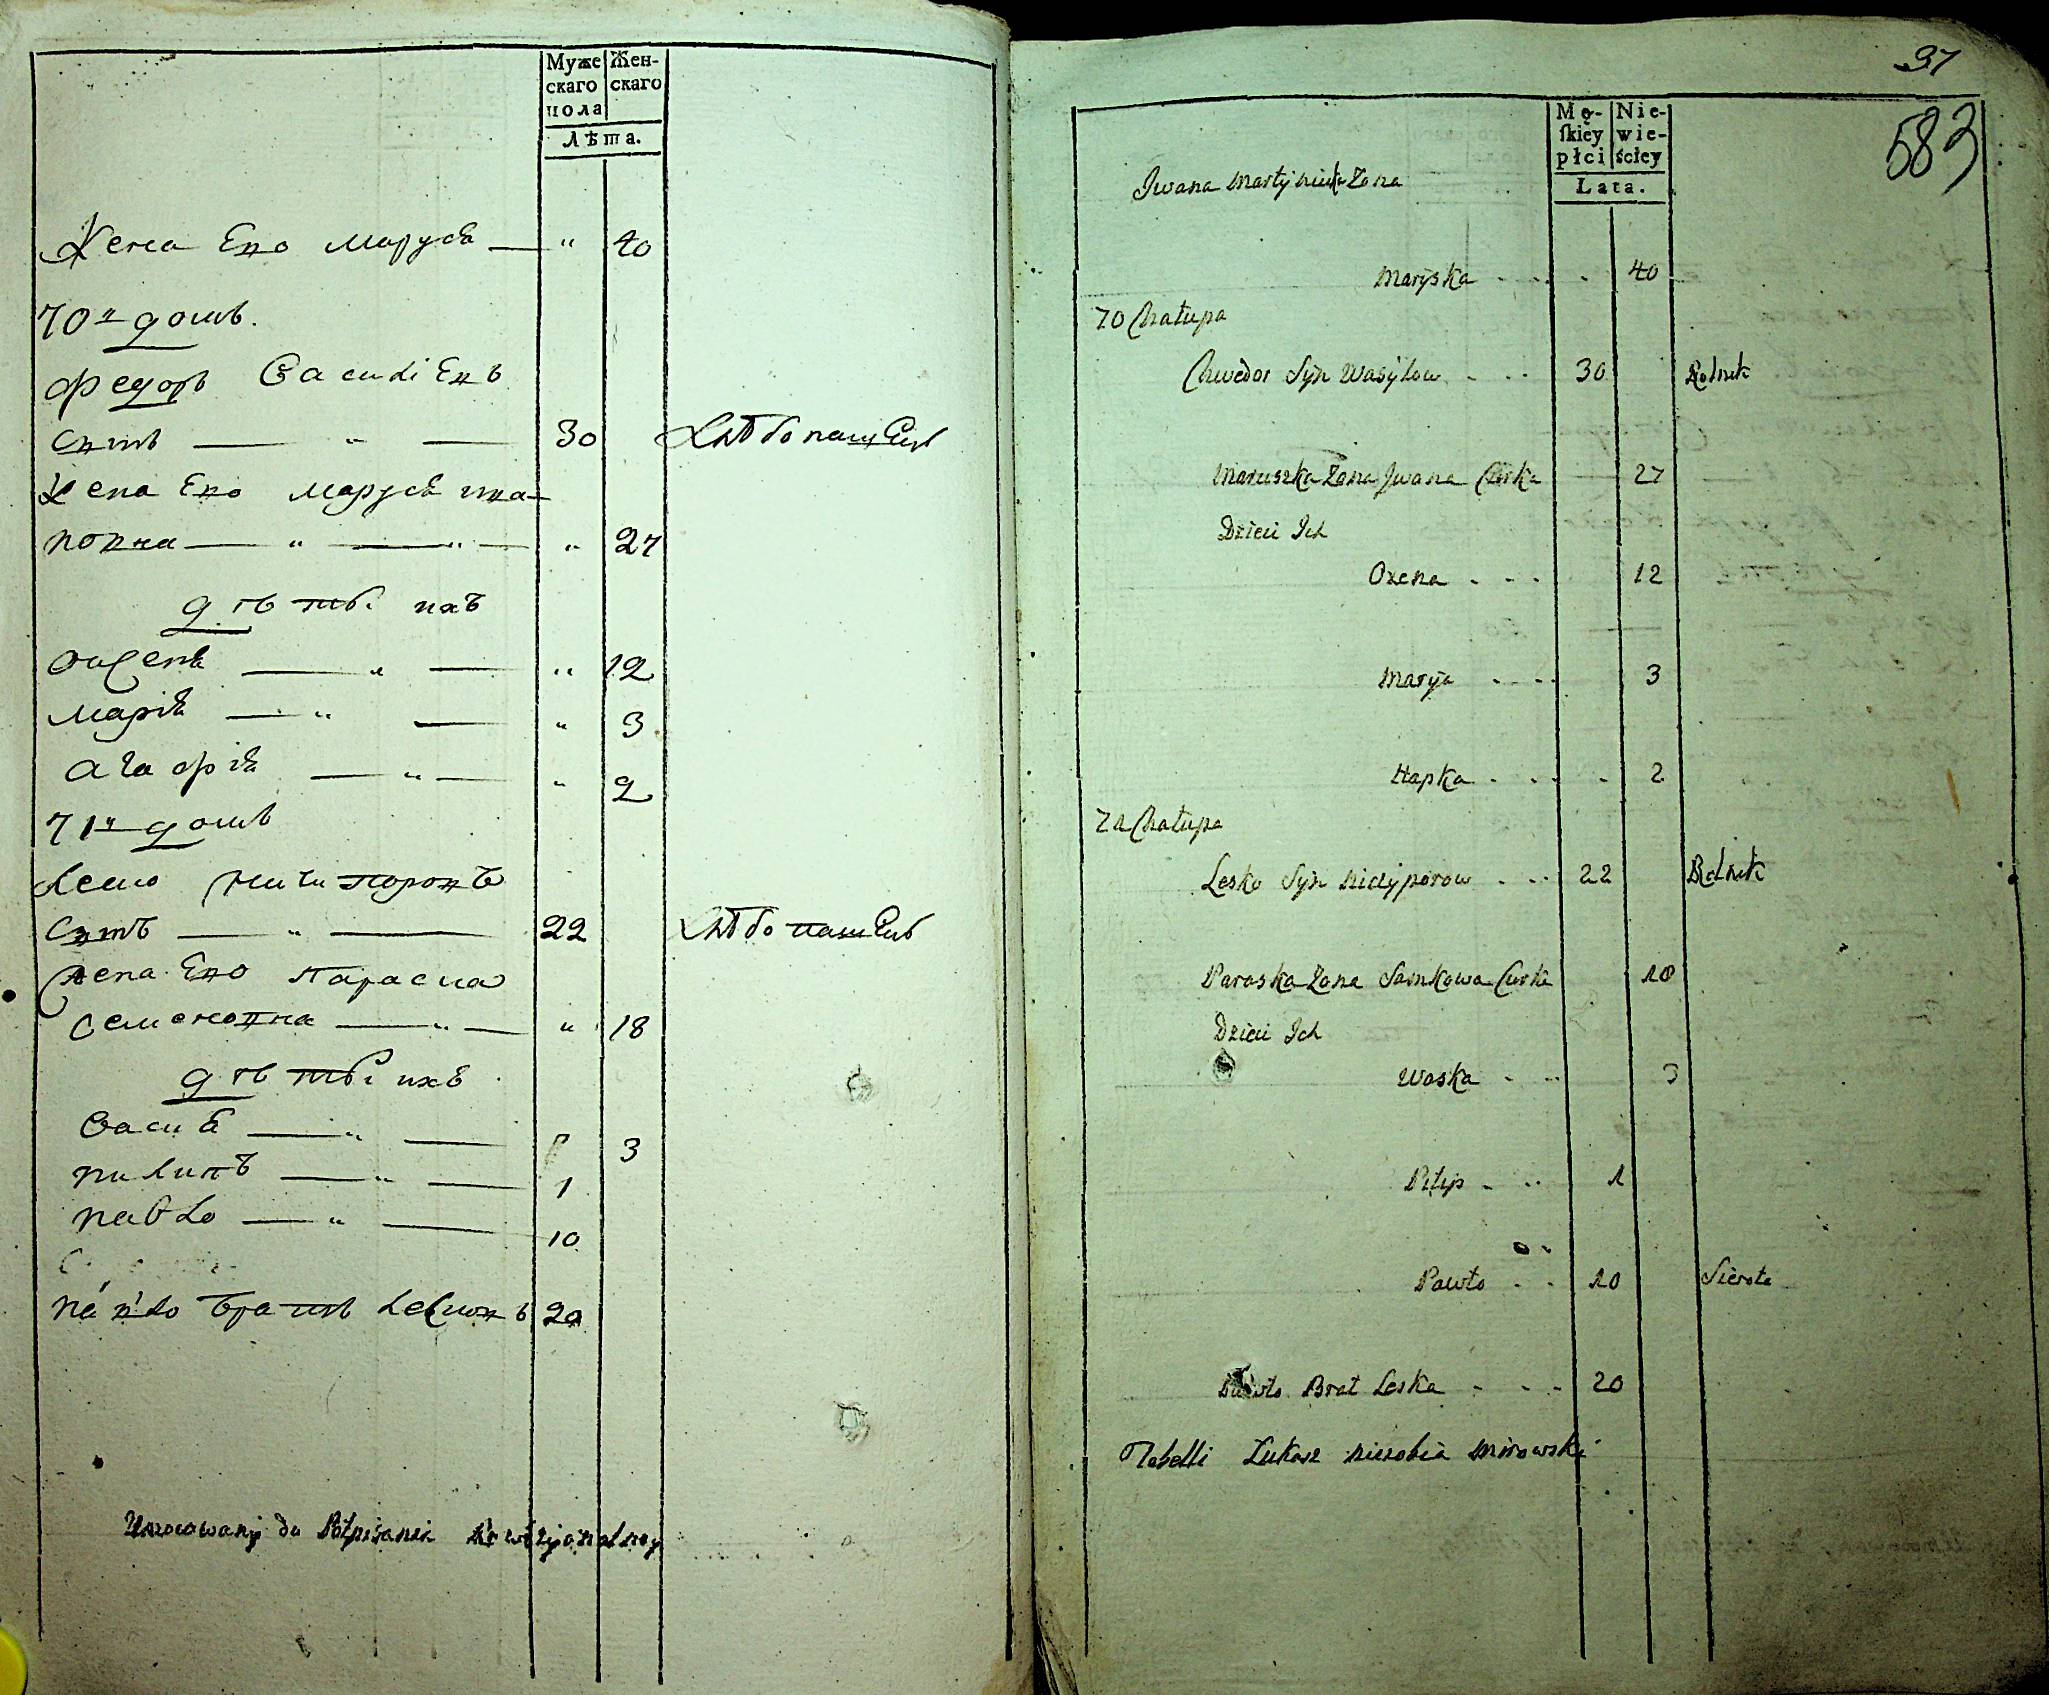 Муже Жен-
скаго скаго
пола
Лѣта.
Жена Его Маруся — " 40
70й домъ.
Федоръ Василіевъ
сынъ — " — 30 Хлѣбопашецъ
Жена Его Маруся
" — " — " 27
дѣти ихъ
Оксеня — " — " 12
Марія — " — " 3
Агафія — " — " 2
71й домъ
Леско Ничипоровъ
сынъ — " — 22 Хлѣбопашецъ
Жена Его Параска
Семеновна — " — " 18
дѣти ихъ
Васья — " — 3
Пилипъ — " — 1
Павло — " — 10
Павло братъ Лесковъ 20
Umocowany do Potpisania Rewizyonalney
37
583
Mę- Nie-
ſkiey wie-
płci ściey
Lata.
Jwana Martyniuka Zona
Maryska 40
70 Chałupa
Chwedor Syn Wasylow 30 Rolnik
Maruszka Zona Jwana Curka 27
Dzieci Ich
Oxena 12
Marya 3
Hapka 2
71 Chałupa
Lesko Syn Niczyporow 22 Rolnik
Paraska Zona Samkowa Curka 18
Dzieci Ich
Waska 3
Pilip 1
Pawło 10 Sierota
Pawło Brat Leska 20
Tabelli Łukasz Mirowski